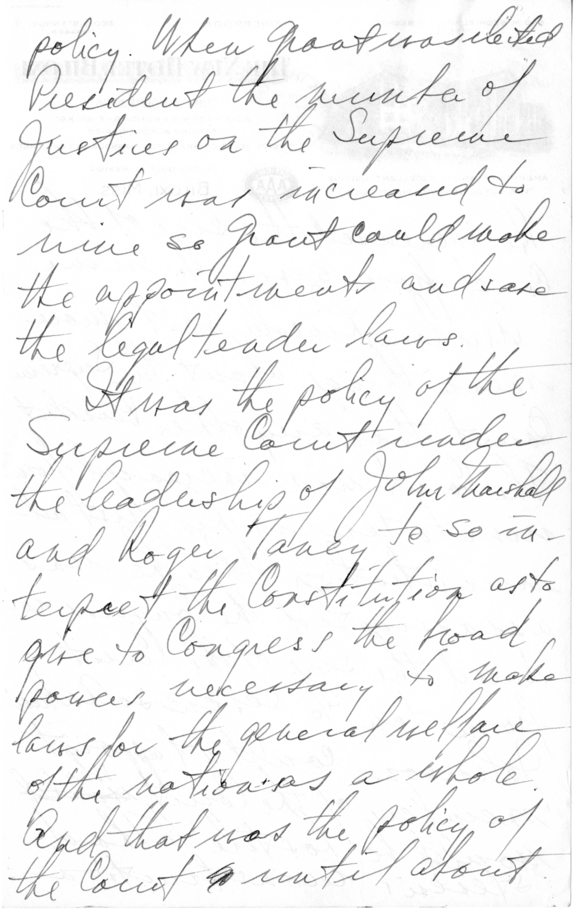 policy. When Grant was elected
President the number of
Justices on the Supreme
Court was increased to
nine so Grant could make
the appointments and save
the legal tender laws.
It was the policy of the
Supreme Court under
the leadership of John Marshall
and Roger Taney to so in-
terpret the Constitution as to
give to Congress the broad
powers necessary to make
laws for the general welfare
of the nation as a whole.
And that was the policy of
the Court until about